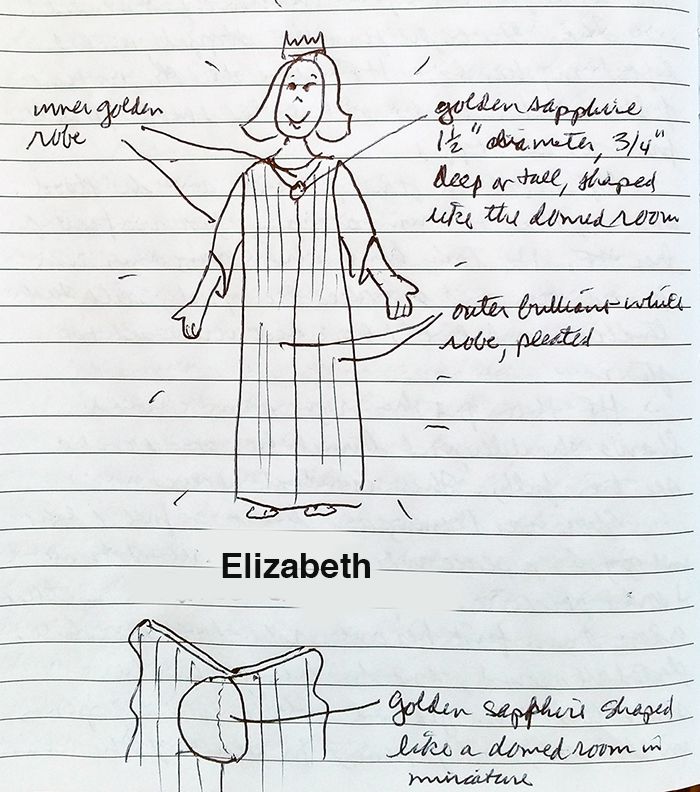 inner golden
robe
golden sapphire
1½" diameter, 3/4"
deep or tall, shaped
like the domed room
outer brilliant-white
robe, pleated
Elizabeth
Golden sapphire shaped
like a domed room in
miniature